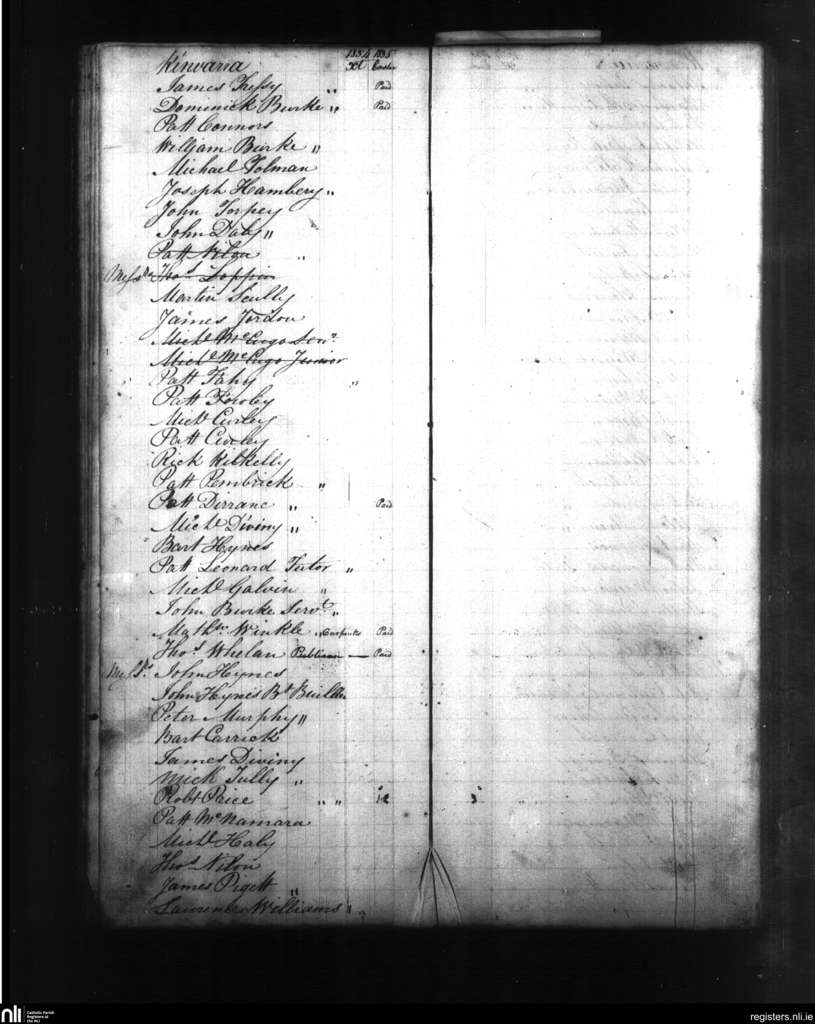 1834 1835
Kinvarra Xt Easter
James Fahy " Paid
Dominick Burke " Paid
Patt Connors
William Burke "
Michael Tolman
Joseph Hambery "
John Torpey
John Daly "
Patt Nilon "
Messrs Thos
Martin Scully
James Jordon
Michl McCugo Senr
Michl McCugo Junior
Patt Fahy "
Patt Fowley
Michl Curley
Patt Curley
Rick Kilkelly
Patt Pembrick "
Patt Dirrane " Paid
Michl Diviny "
Bart Hynes
Patt Leonard Tutor "
Michl Galvin "
John Burke Servt "
Mathw Winkle " Carpenter Paid
Thos Whelan Publican — Paid
Messrs John Hynes
John Hynes Bt Builder
Peter Murphy "
Bart Carrick
James Diviny
Mick Tully "
Robt Paice " " 12 3
Patt McNamara
Michl Haly
Thos Nilon
James Pigott "
Laurence Williams "
nli Catholic Parish Registers at the NLI
registers.nli.ie